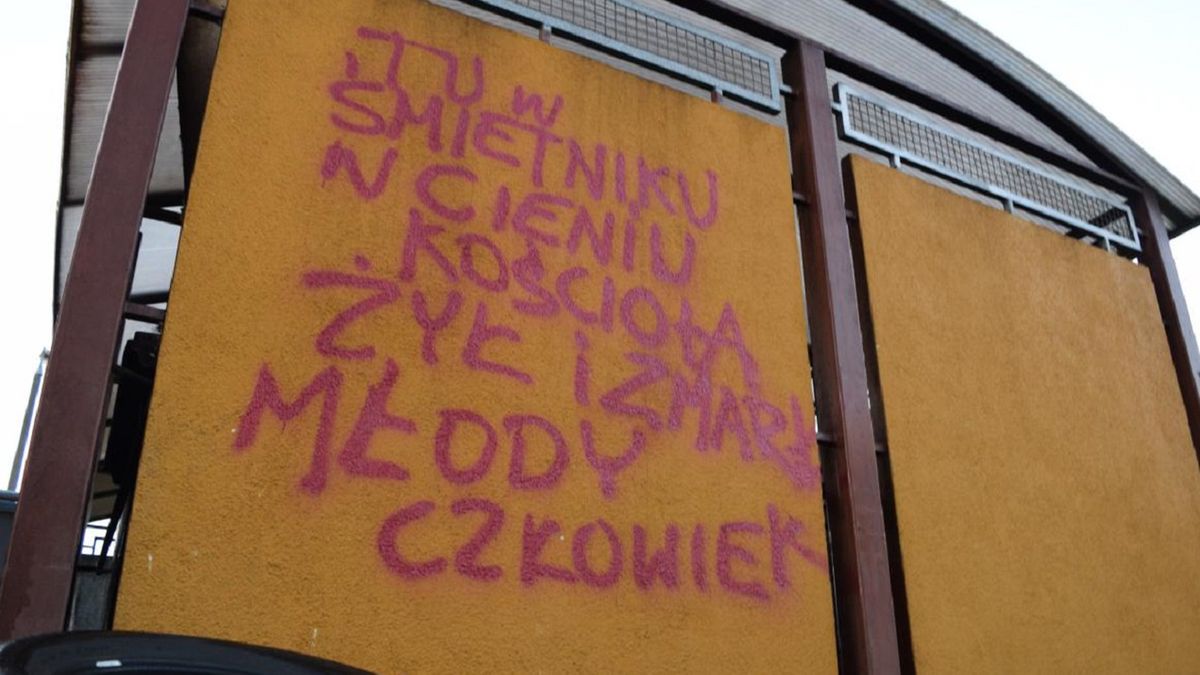 TU W
ŚMIETNIKU
W CIENIU
KOŚCIOŁA
ŻYŁ I ZMARŁ
MŁODY
CZKOWIEK